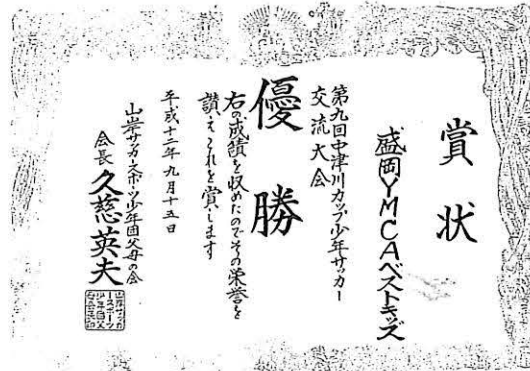 賞状
盛岡YMCAベストキッズ
第九回中津川カップ少年サッカー
交流大会
優勝
右の成績を収めたのでその栄誉を
讃えこれを賞します
平成十二年九月十五日
山岸サッカースポーツ少年団父母の会
会長 久慈英夫